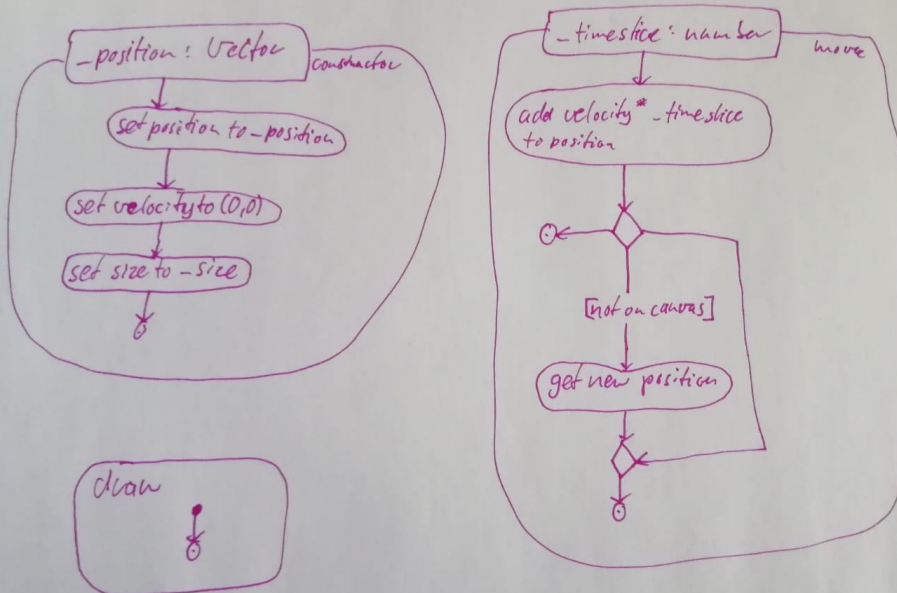 _position: Vector
constructor
set position to _position
set velocity to (0,0)
set size to _size
draw
_timeslice: number
move
add velocity * _timeslice
to position
[not on canvas]
get new position